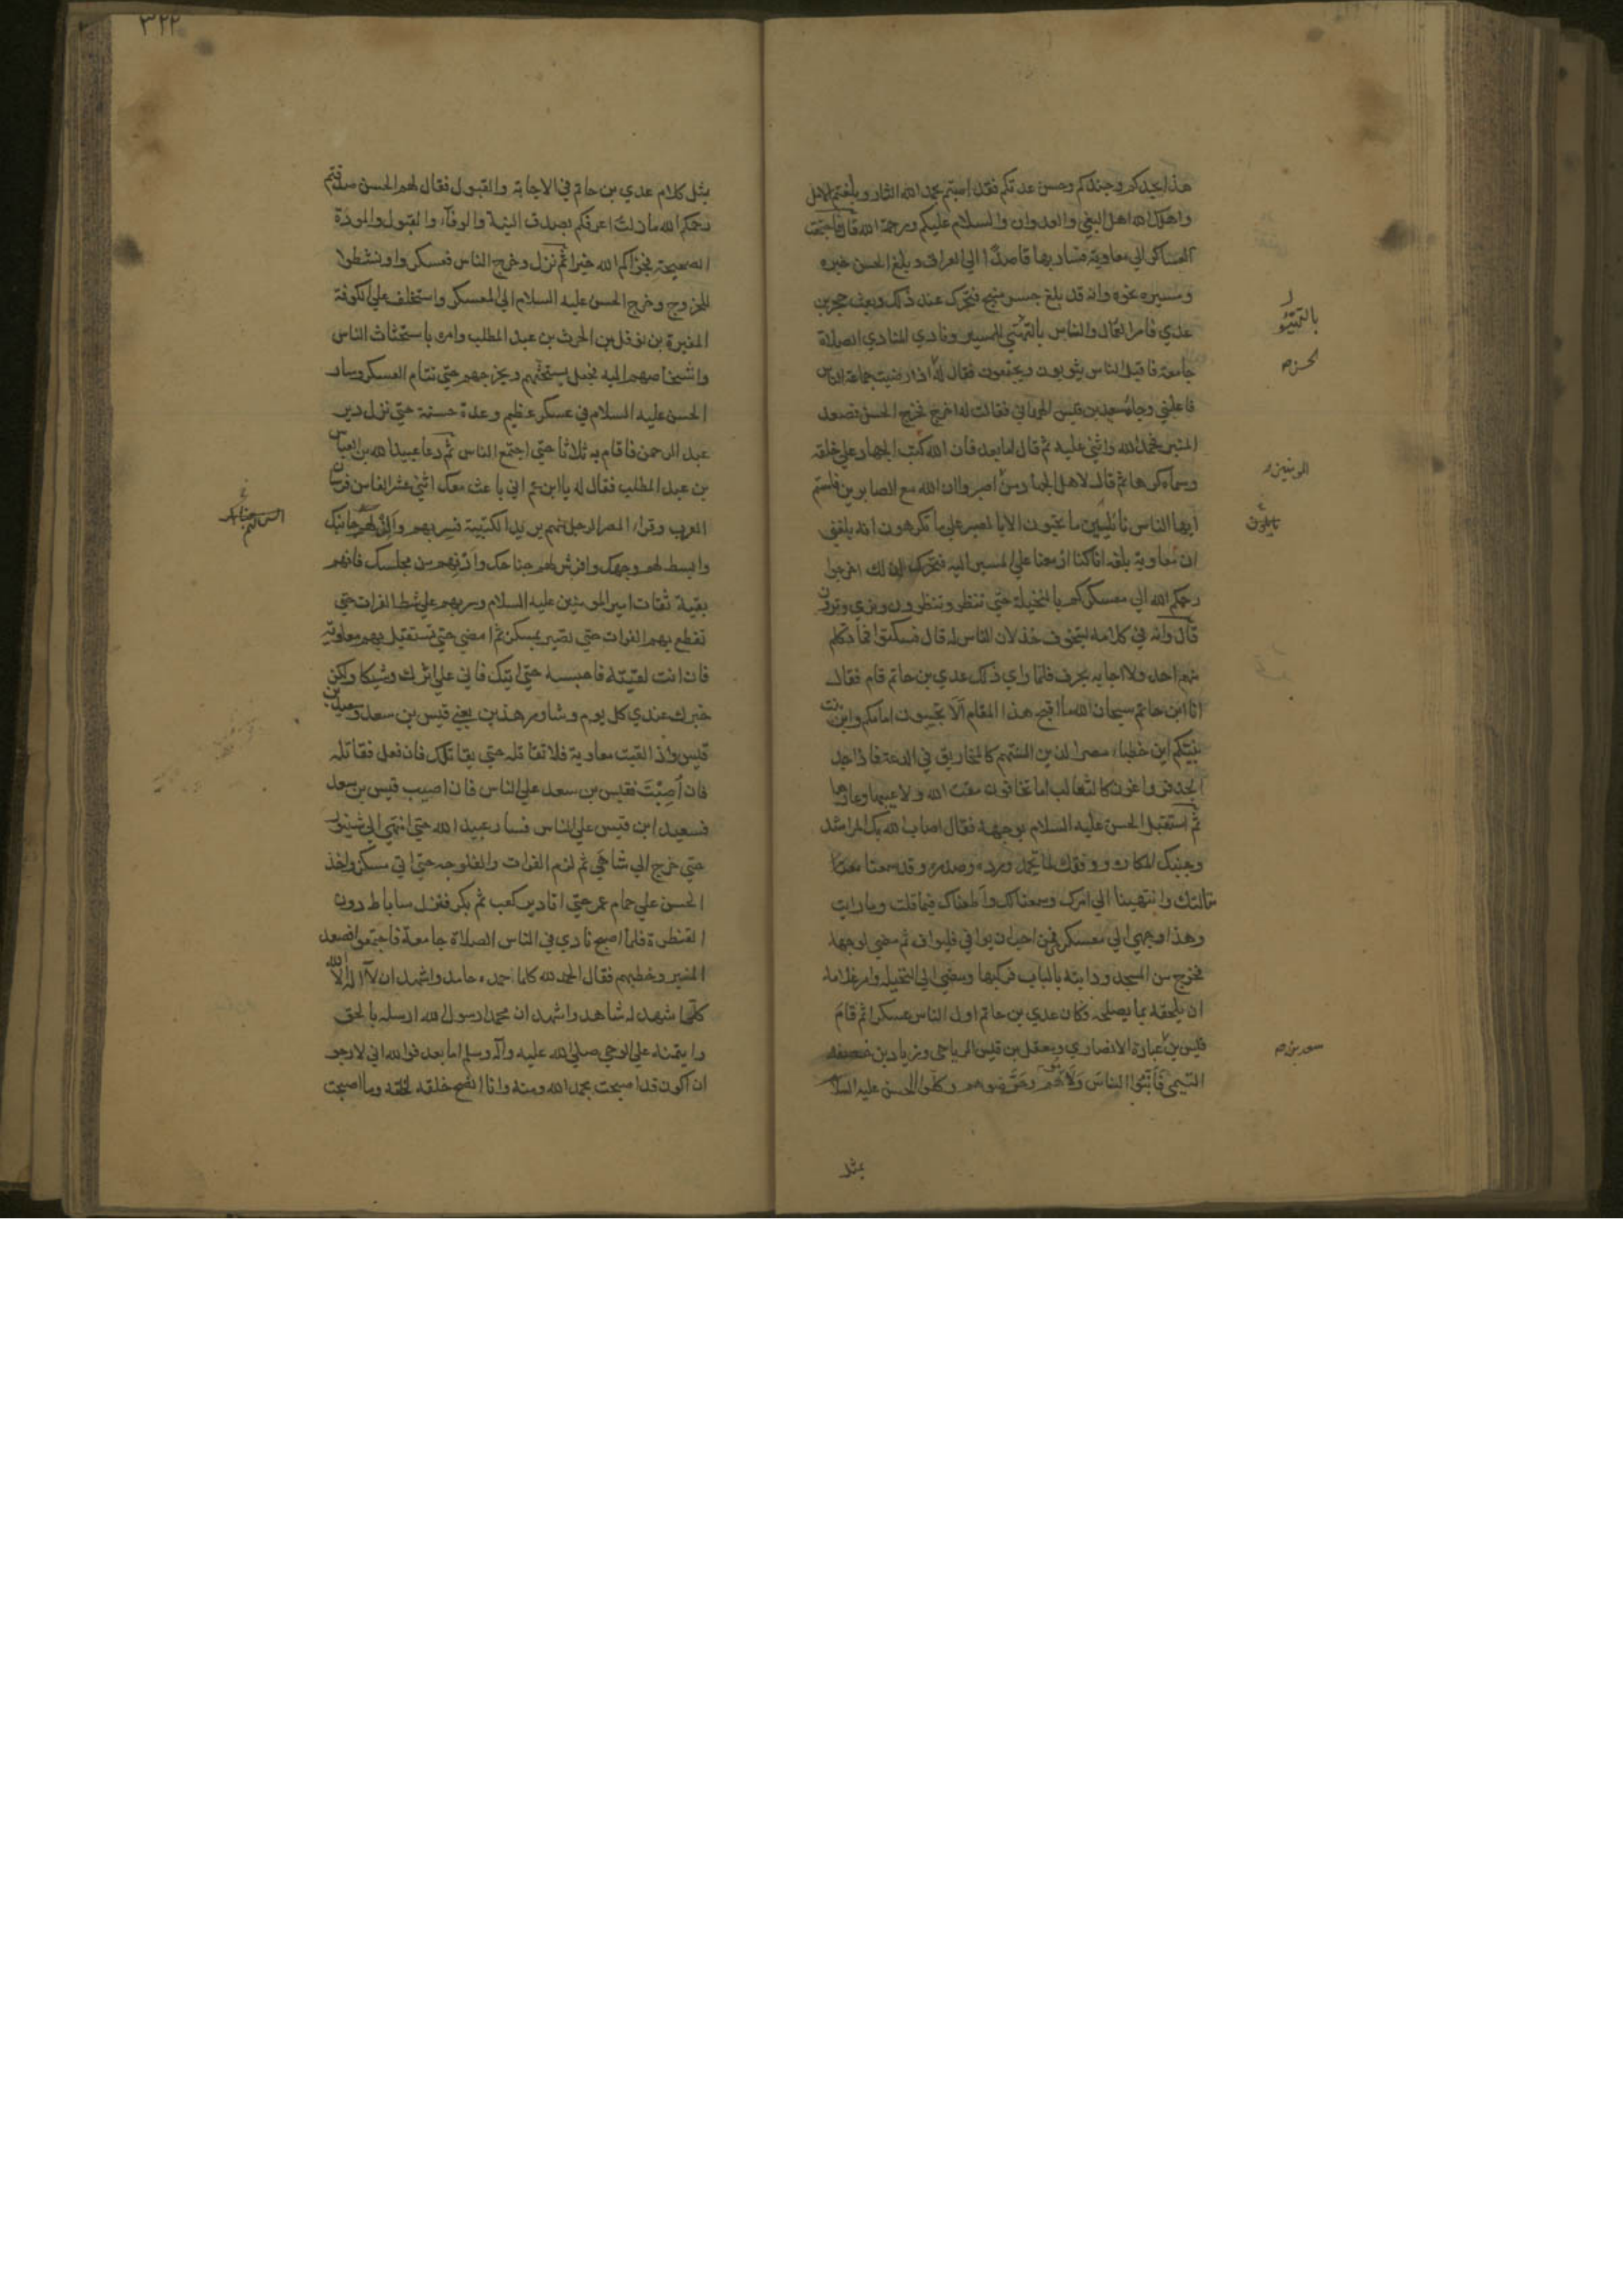 هذا بجدكم وجندكم وحسن عدتكم فقد اصبتم بحمد الله الثار وبلغتم الامل
واهلك الله اهل البغي والعدوان والسلام عليكم ورحمة الله قال فاجتمعت
العساكر الي معاوية فسار بها قاصدا الي العراق وبلغ الحسن خبره
ومسيره نحوه وانه قد بلغ جسر منبج فتحرك عند ذلك وبعث حجر بن
عدي فامر العمال والناس بالتهيئ للمسير ونادي المنادي الصلاة
جامعة فاقبل الناس يثوبون ويجتمعون فقال له اذا رضيت جماعة الناس
فاعلمني وجاء سعيد بن قيس الهمداني فقال له اخرج فخرج الحسن فصعد
المنبر فحمد الله واثني عليه ثم قال اما بعد فان الله كتب الجهاد علي خلقه
وسماه كرها ثم قال لاهل الجهاد من اصبروا ان الله مع الصابرين فلستم
ايها الناس نائلين ما تحبون الا بالصبر علي ما تكرهون انه بلغني
ان معاوية بلغه انا كنا ازمعنا علي المسير اليه فتحرك لذلك اخرجوا
رحمكم الله الي معسكركم بالنخيلة حتي ننظر وتنظرون ونري وترون
قال وانه في كلامه ليتخوف خذلان الناس له قال فسكتوا فما تكلم
منهم احد ولا اجابه بحرف فلما راي ذلك عدي بن حاتم قام فقال
انا ابن حاتم سبحان الله ما اقبح هذا المقام الا تجيبون امامكم وابن بنت
نبيكم اين خطباء مصر الذين السنتهم كالمخاريق في الدعة فاذا جد
الجد فرواغون كالثعالب اما تخافون مقت الله ولا عيبها وعارها
ثم استقبل الحسن عليه السلام بوجهه فقال اصاب الله بك المراشد
وجنبك المكاره ووفقك لما تحمد ورده وصدره وقد سمعنا
مقالتك وانتهينا الي امرك وسمعنا لك واطعناك فيما قلت وما رايت
وهذا وجهي الي معسكري فمن احب ان يوافي فليواف ثم مضي لوجهه
فخرج من المسجد ودابته بالباب فركبها ومضي الي النخيلة وامر غلامه
ان يلحقه بما يصلحه فكان عدي بن حاتم اول الناس عسكرا ثم قام
قيس بن عبادة الانصاري ومعقل بن قيس الرياحي وزياد بن خصفه
التيمي فانبوا الناس ولاموهم وحرضوهم وكلموا الحسن عليه السلام
بمثل
بالتهيئو
المومنين
سعد بن
٣٢٢
بمثل كلام عدي بن حاتم في الاجابة والقبول فقال لهم الحسن صدقتم
رحمكم الله ما زلت اعرفكم بصدق النية والوفاء والقبول والمودة
الصحيحة فجزاكم الله خيرا ثم نزل وخرج الناس فعسكروا ونشطوا
للخروج وخرج الحسن عليه السلام الي المعسكر واستخلف علي الكوفة
المغيرة بن نوفل بن الحرث بن عبد المطلب وامره باستحثاث الناس
واشخاصهم اليه فجعل يستحثهم ويخرجهم حتي نتام العسكر وسار
الحسن عليه السلام في عسكر عظيم وعدة حسنة حتي نزل دير
عبد الرحمن فاقام به ثلاثا حتي اجتمع الناس ثم دعا عبيد الله بن العباس
بن عبد المطلب فقال له يا ابن عم اني باعث معك اثني عشر الفا من فرسان
العرب وقراء المصر الرجل منهم يريد الكتيبة فسر بهم والن لهم جانبك
وابسط لهم وجهك وافرش لهم جناحك وادنهم من مجلسك فانهم
بقية ثقات امير المومنين عليه السلام وسر بهم علي شط الفرات حتي
تقطع بهم الفرات حتي تصير بمسكن ثم امضي حتي تستقبل بهم معاوية
فان انت لقيته فاحبسه حتي اتيك فاني علي اثرك وشيكا وليكن
خبرك عندي كل يوم وشاور هذين يعني قيس بن سعد وسعيد بن
قيس واذا لقيت معاوية فلا تقاتله حتي يقاتلك فان فعل فقاتله
فان اصبت فقيس بن سعد علي الناس فان اصيب قيس بن سعد
فسعيد ابن قيس علي الناس فسار عبيد الله حتي انتهي الي شينور
حتي خرج الي شاهي ثم لزم الفرات والفلوجه حتي اتي مسكن واخذ
الحسن علي حمام عمر حتي اتا دير كعب ثم بكر فنزل ساباط دون
القنطرة فلما اصبح نادي في الناس الصلاة جامعة فاجتمعوا فصعد
المنبر وخطبهم فقال الحمد لله كلما حمده حامد واشهد ان لا اله الا الله
كلما شهد له شاهد واشهد ان محمدا رسول الله ارسله بالحق
وايتمنه علي الوحي صلي الله عليه وآله وسلم اما بعد فوالله اني لارجو
ان اكون قد اصبحت بحمد الله ومنه وانا انصح خلقه لخلقه وما اصبحت